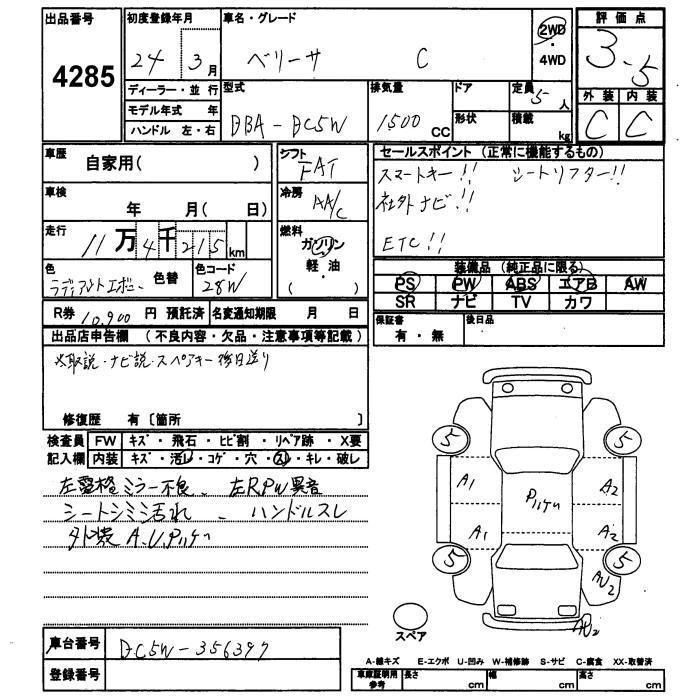 出品番号 4285
初度登録年月 24 3月
ディーラー・並行
モデル年式 年
ハンドル 左・右
車名・グレード ベリーサ C
2WD
4WD
型式 DBA-DC5W
排気量 1500 CC
ドア
形状
定員 5 人
積載 kg
評価点 3.5
外装 内装
C C
車歴 自家用( )
車検 年 月( 日)
走行 11万4千215km
色 ラディアントエボニー 色替
色コード 28W
シフト FAT
冷房 AA/C
燃料 ガソリン
軽・油
( )
セールスポイント (正常に機能するもの)
スマートキー!! シートリフター!!
社外ナビ!!
ETC!!
装備品 (純正品に限る)
PS PW ABS エアB AW
SR ナビ TV カワ
R券 10,900 円 預託済 名変通知期限 月 日
保証書 有・無
後日品
出品店申告欄 (不良内容・欠品・注意事項等記載)
※取説・ナビ説・スペアキー後日送り
修復歴 有 [箇所 ]
検査員 FW キズ・飛石・ヒビ割・リペア跡・X要
記入欄 内装 キズ・汚レ・コゲ・穴・スレ・キレ・破レ
左電格ミラー不良、左RPW異音
シートシミ汚れ、ハンドルスレ
外装A.U.Pハゲ
5 5
A1 Pハゲ A2
A1 A2
5 5
AU2
AU2
スペア
車台番号 DC5W-356397
登録番号
A-線キズ E-エクボ U-凹み W-補修跡 S-サビ C-腐食 XX-取替済
車庫証明用参考 長さ cm 幅 cm 高さ cm